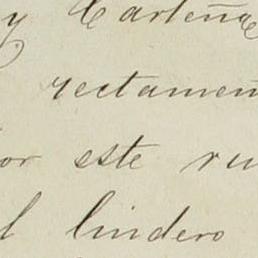 y Carteña
rectamen
or este ru
l lindero